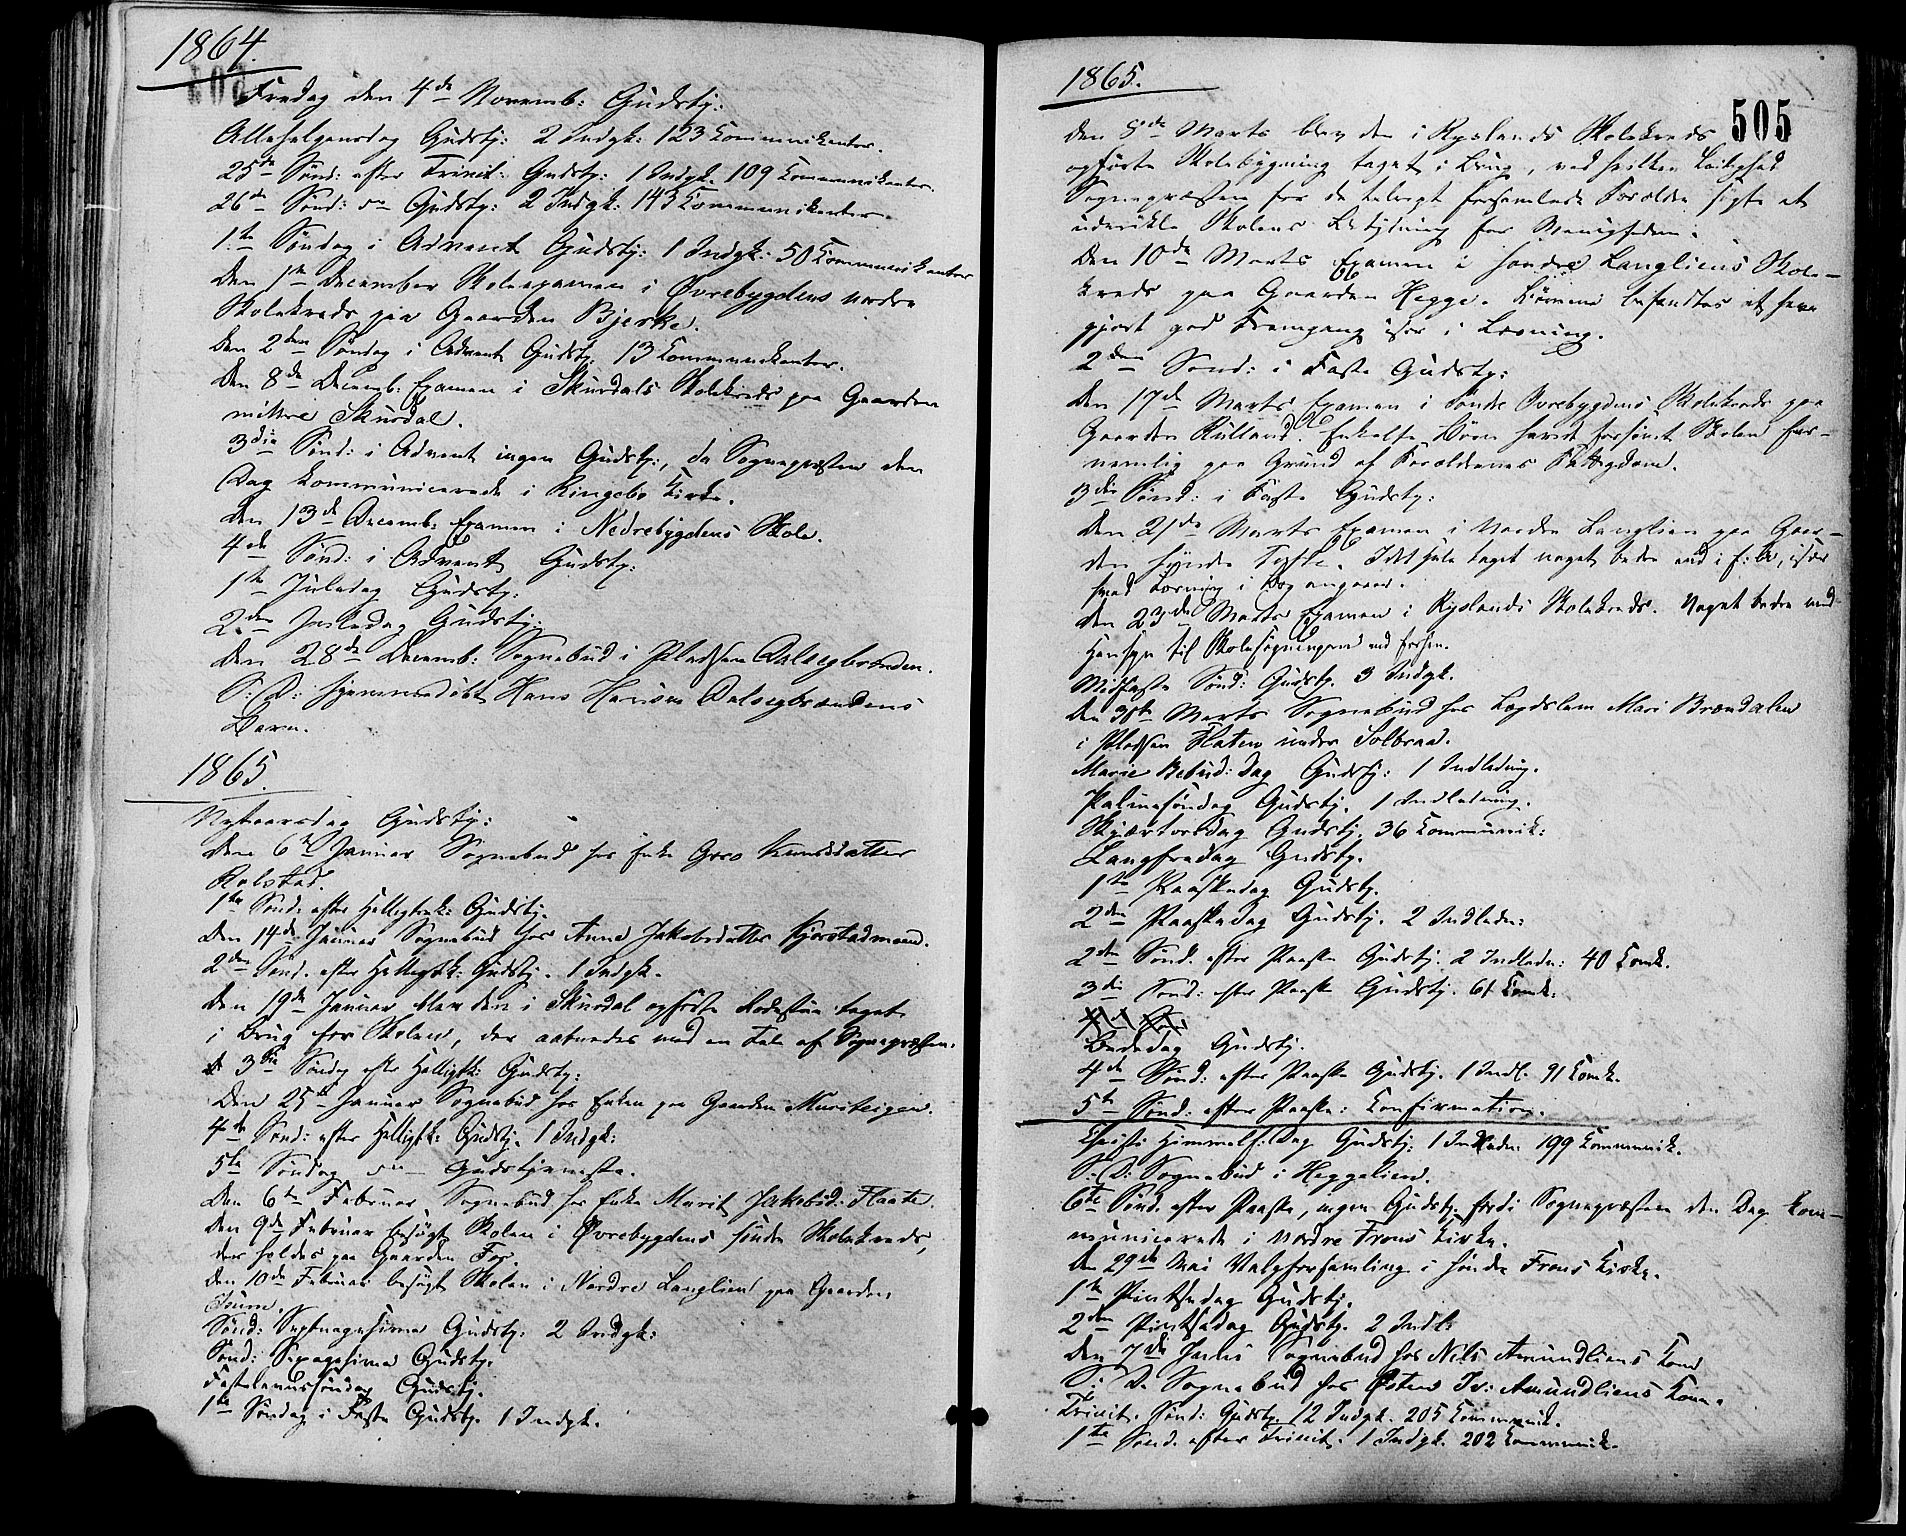 1864.
Fredag den 4de Novemb: Gudstj:
Allehelgensdag Gudstj: 2 Indgk: 123 Kommunikanter.
25de Sønd: efter Trinit: Gudstj: 1 Indgk. 109 Kommunikanter.
26de Sønd: Gudstj: 2 Indgk: 143 Kommunikanter.
1te Søndag i Advent Gudstj: 1 Indgk: 50 Kommunikanter
Den 1te December Skoleexamen i Øvrebygdens nordre
Skolekreds paa Gaarden Bjerke.
Den 2den Søndag i Advent Gudstj. 13 Kommunikanter.
Den 8de Decemb: Examen i Skurdals Skolekreds paa Gaarden
midtre Skurdal.
3die Sønd: i Advent ingen Gudstj:, da Sognepræsten den
Dag kommunicerede i Ringebo Kirke.
Den 13de Decemb: Examen i Nedrebygdens Skole.
4de Sønd: i Advent Gudstj:
1te Juledag Gudstj:
2den Juledag Gudstj:
Den 28de Decemb: Sognebud i Pladsen Dalsegbrænden.
S: D: hjemmedøbt Hans Hansen Dalsegbrændens
Barn.
1865.
Nytaarsdag Gudstj:
Den 6te Januar Sognebud hos Enke Gro Knudsdatter
Rolstad.
1te Sønd. efter Helligtrek: Gudstj.
Den 14de Januar Sognebud hos Anne Jakobsdatter Kjorstadmoen.
2den Sønd. efter Helligtk: Gudstj. 1 Indgk.
Den 19de Januar blev den i Skurdal opførte Rodestue taget
i Brug for Skolen, der aabnedes med en Tale af Sognepræsten.
3die Søndag efter Helligtk: Gudstj:
Den 25de Januar Sognebud hos Enken paa Gaarden
4de Sønd: efter Helligtk: Gudstj. 1 Indgk:
5te Søndag Gudstjeneste.
Den 6te Februar Sognebud hos Enke Marit Jakobsd: Flaate.
Den 9de Februar besøgt Skolen i Øvrebygdens søndre Skolekreds,
der holdes paa Gaarden
Den 10de Februar besøgt Skolen i Nordre Langlien paa Gaarden
Sønd: Septuagesima Gudstj: 2 Indgk:
Sønd: Sexagesima Gudstj.
Fastelavnssøndag Gudstj.
1te Søndag i Faste Gudstj. 1 Indgk.
1865.
505
Den 8de Marts blev den i Ryslands Skolekreds
opførte Skolebygning taget i Brug, ved hvilken Leilighed
Sognepræsten for de talrigt forsamlede Forældre søgte at
udvikle Skolens Betydning for Menigheden.
Den 10de Marts Examen i søndre Langliens Skole-
kreds paa Gaarden Hegge. Børnene befandtes at have
gjort god Fremgang især i Læsning.
2den Sønd: i Faste Gudstj:
Den 17de Marts Examen i søndre Øvrebygdens Skolekreds paa
Gaarden Rulland. Enkelte Børn havde forsømt Skolen for-
nemlig paa Grund af Forældrenes Fattigdom.
3die Sønd: i Faste Gudstj:
Den 21de Marts Examen i Nordre Langlien paa Gaar-
den søndre Idethele taget noget bedre end i f: A, især
hvad Læsning i Bog angaaer.
Den 23de Marts Examen i Ryslands Skolekreds. Noget bedre med
Hensyn til Skolesøgningen end forhen.
Midfaste Sønd: Gudstj. 3 Indgk.
Den 30te Marts Sognebud hos Lægdslem Mari Brændalen
i Pladsen Flaten under Solbraa.
Marie Bebud: Dag Gudstj: 1 Indledning.
Palmesøndag Gudstj. 1 Indledning.
Skjærtorsdag Gudstj. 36 Kommunik:
Langfredag Gudstj.
1te Paaskedag Gudstj.
2den Paaskedag Gudstj. 2 Indledn:
2den Sønd. efter Paaske Gudstj. 2 Indledn: 40 Komk.
3die Sønd: efter Paaske Gudstj. 61 Komk:
Bededag Gudstj.
4de Sønd: efter Paaske Gudstj. 1 Indl. 91 Komk.
5te Sønd: efter Paaske: Confirmation.
Christi Himmelf: Dag Gudstj: 1 Indledn: 199 Kommunik.
S. D: Sognebud i Heggelien.
6te Sønd. efter Paaske, ingen Gudstj. fordi Sognepræsten den Dag kom-
municerede i Nordre Frons Kirke.
Den 29de Mai Valgforsamling i søndre Frons Kirke.
1te Pintsedag Gudstj.
2den Pintsedag Gudstj. 2 Indl:
Den 7de Juni Sognebud hos Nils Amundliens Kone
S: D. Sognebud hos Østen Iv: Amundliens Kone.
Trinit. Sønd: Gudstj. 12 Indgk. 205 Kommunik.
1te Sønd. efter Trinit. 1 Indgk. 202 Kommunik.